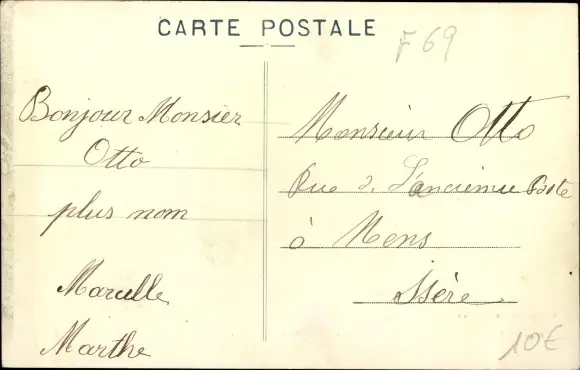 CARTE POSTALE
F 69
Bonjour Monsier
Otto
plus nom
Marcelle
Marthe
Monsieur Otto
Rue d. L'ancienne Poste
à Mens
Isère
10€